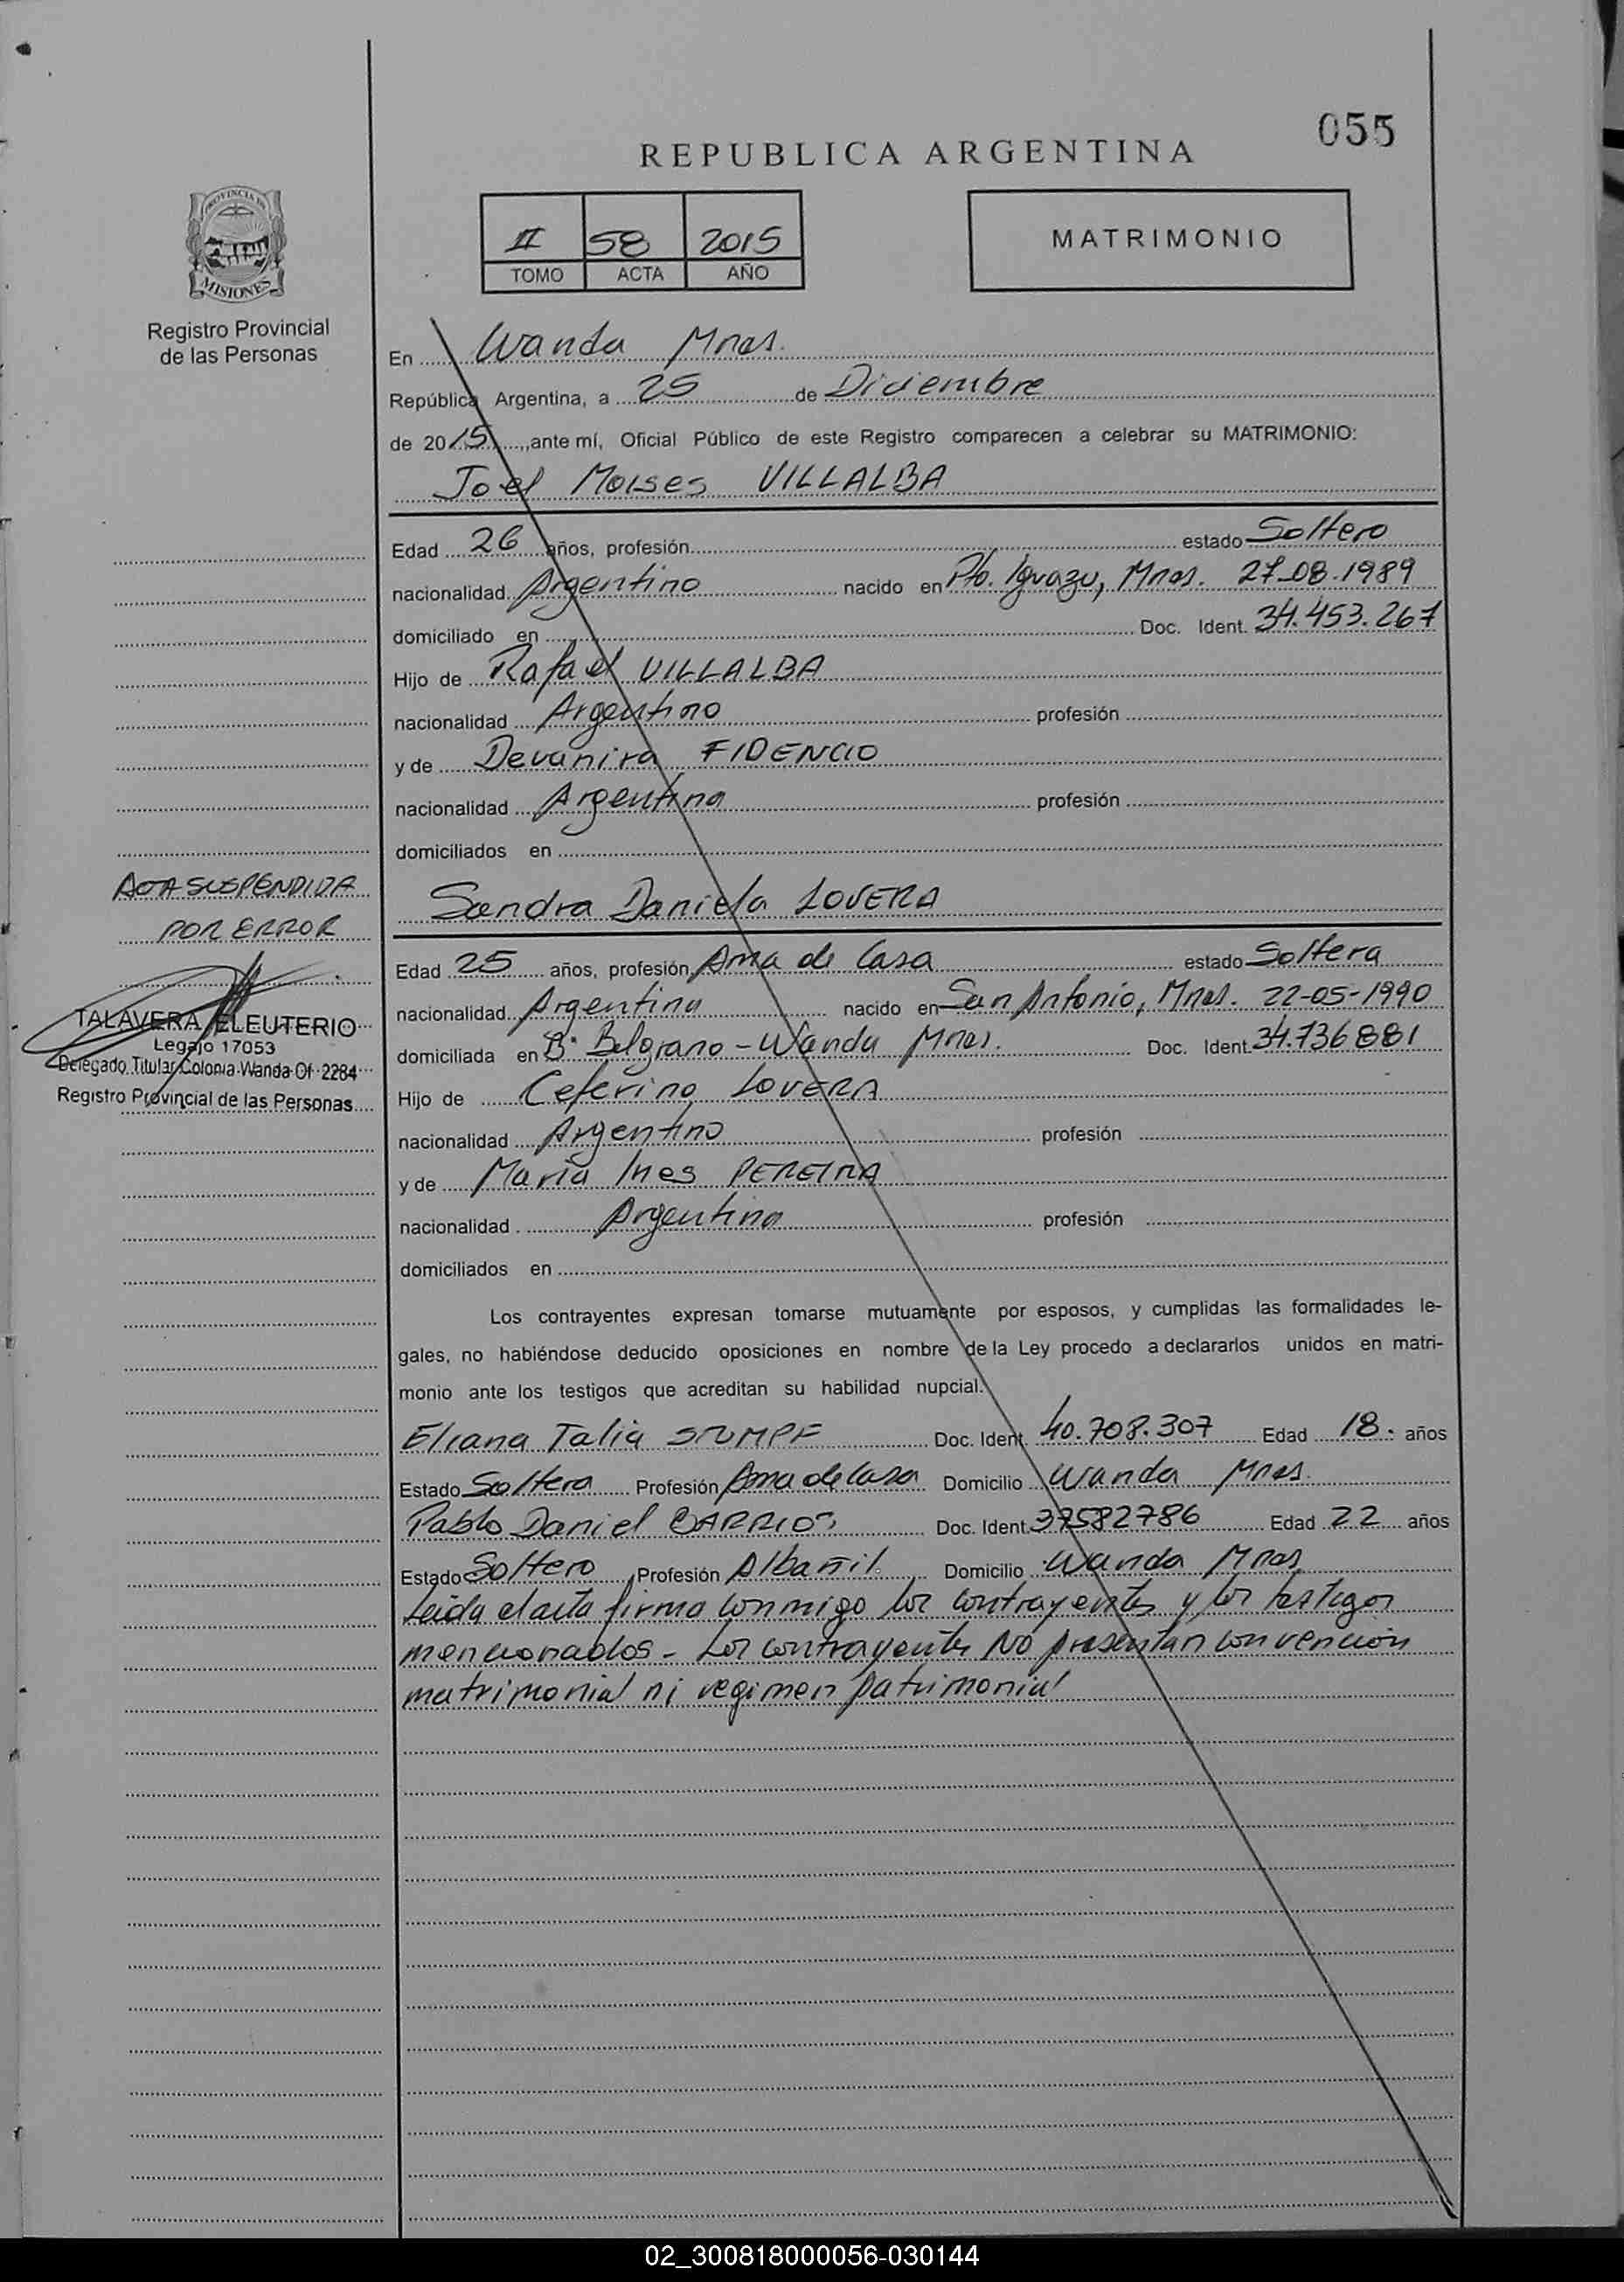 055
REPUBLICA ARGENTINA
PROVINCIA DE
MISIONES
Registro Provincial
de las Personas
II 58 2015
TOMO ACTA AÑO
MATRIMONIO
En Wanda Mnes.
República Argentina, a 25 de Diciembre
de 2015, ante mí, Oficial Público de este Registro comparecen a celebrar su MATRIMONIO:
Joel Moises VILLALBA
Edad 26 años, profesión estado Soltero
nacionalidad Argentino nacido en Pto. Iguazu, Mnes. 27-08-1989
domiciliado en Doc. Ident. 34.453.267
Hijo de Rafael VILLALBA
nacionalidad Argentino profesión
y de Devanira FIDENCIO
nacionalidad Argentina profesión
domiciliados en
Sandra Daniela LOVERA
Edad 25 años, profesión Ama de Casa estado Soltera
nacionalidad Argentina nacido en San Antonio, Mnes. 22-05-1990
domiciliada en Bº Belgrano - Wanda Mnes. Doc. Ident. 34.736881
Hijo de Ceferino LOVERA
nacionalidad Argentino profesión
y de Maria Ines PEREIRA
nacionalidad Argentina profesión
domiciliados en
Los contrayentes expresan tomarse mutuamente por esposos, y cumplidas las formalidades le-
gales, no habiéndose deducido oposiciones en nombre de la Ley procedo a declararlos unidos en matri-
monio ante los testigos que acreditan su habilidad nupcial.
Eliana Talia STUMPF Doc. Ident. 40.708.307 Edad 18. años
Estado Soltera Profesión Ama de Casa Domicilio Wanda Mnes.
Pablo Daniel BARRIOS Doc. Ident. 37582786 Edad 22 años
Estado Soltero Profesión Albañil. Domicilio Wanda Mnes
Leida el acta firma conmigo los contrayentes y los testigos
mencionados - Los contrayentes No presentan convencion
matrimonial ni regimen patrimonial
ACTA SUSPENDIDA
POR ERROR
TALAVERA ELEUTERIO
Legajo 17053
Delegado Titular Colonia Wanda Of 2284
Registro Provincial de las Personas
02_300818000056-030144